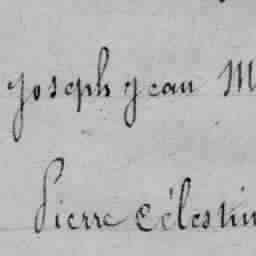 Joseph Jean M
Pierre Célestin